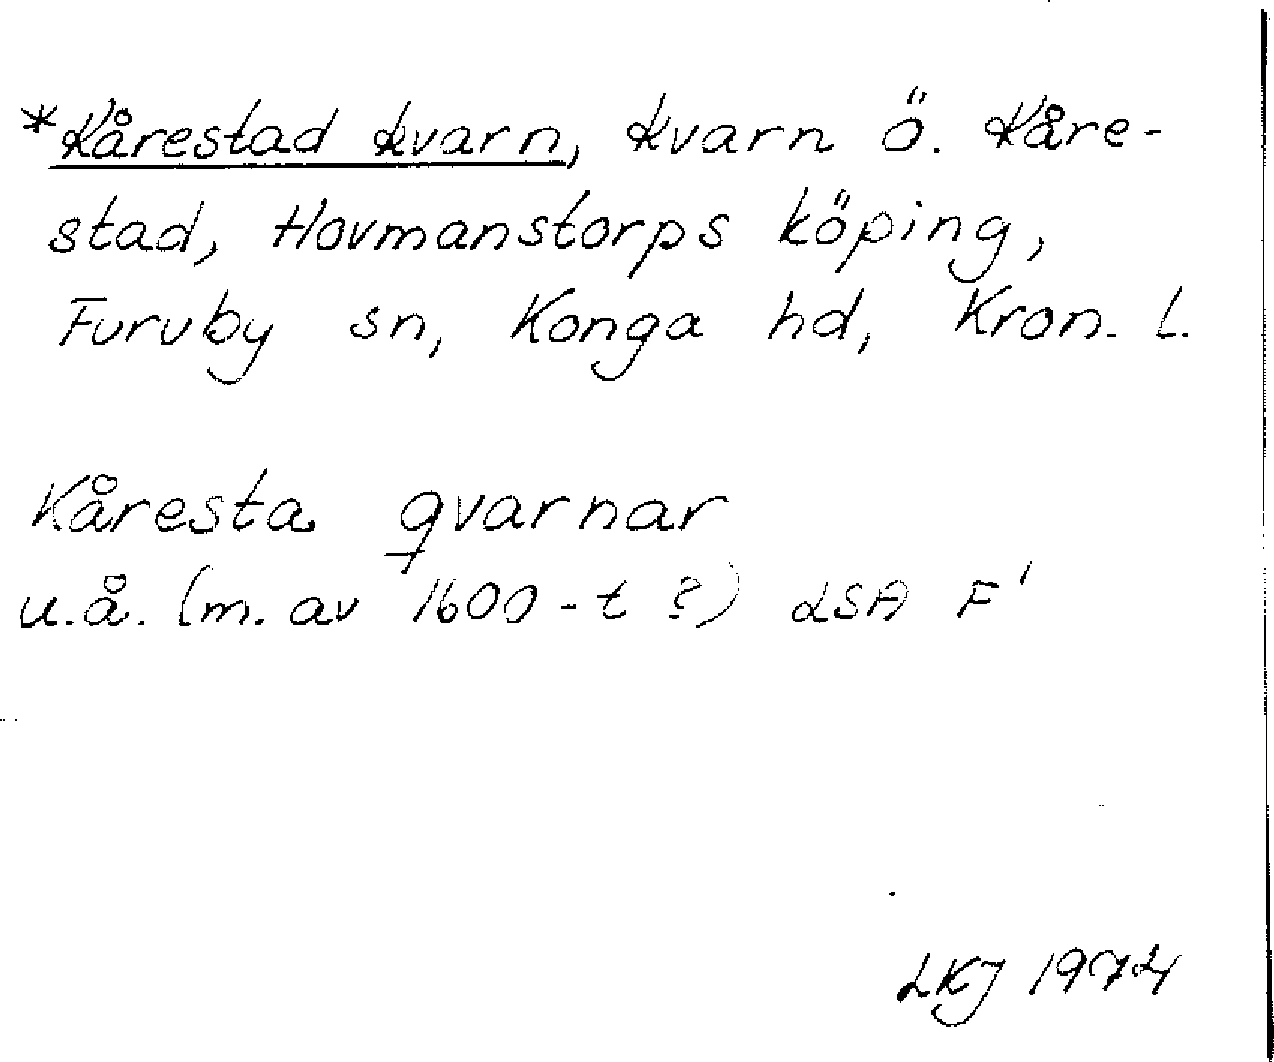 *Kårestad kvarn, kvarn ö. Kåre-
stad, Hovmanstorps köping,
Furuby sn, Konga hd, Kron. l.
Kåresta qvarnar
u.å. (m. av 1600-t ?) LSA F'
LKJ 1974